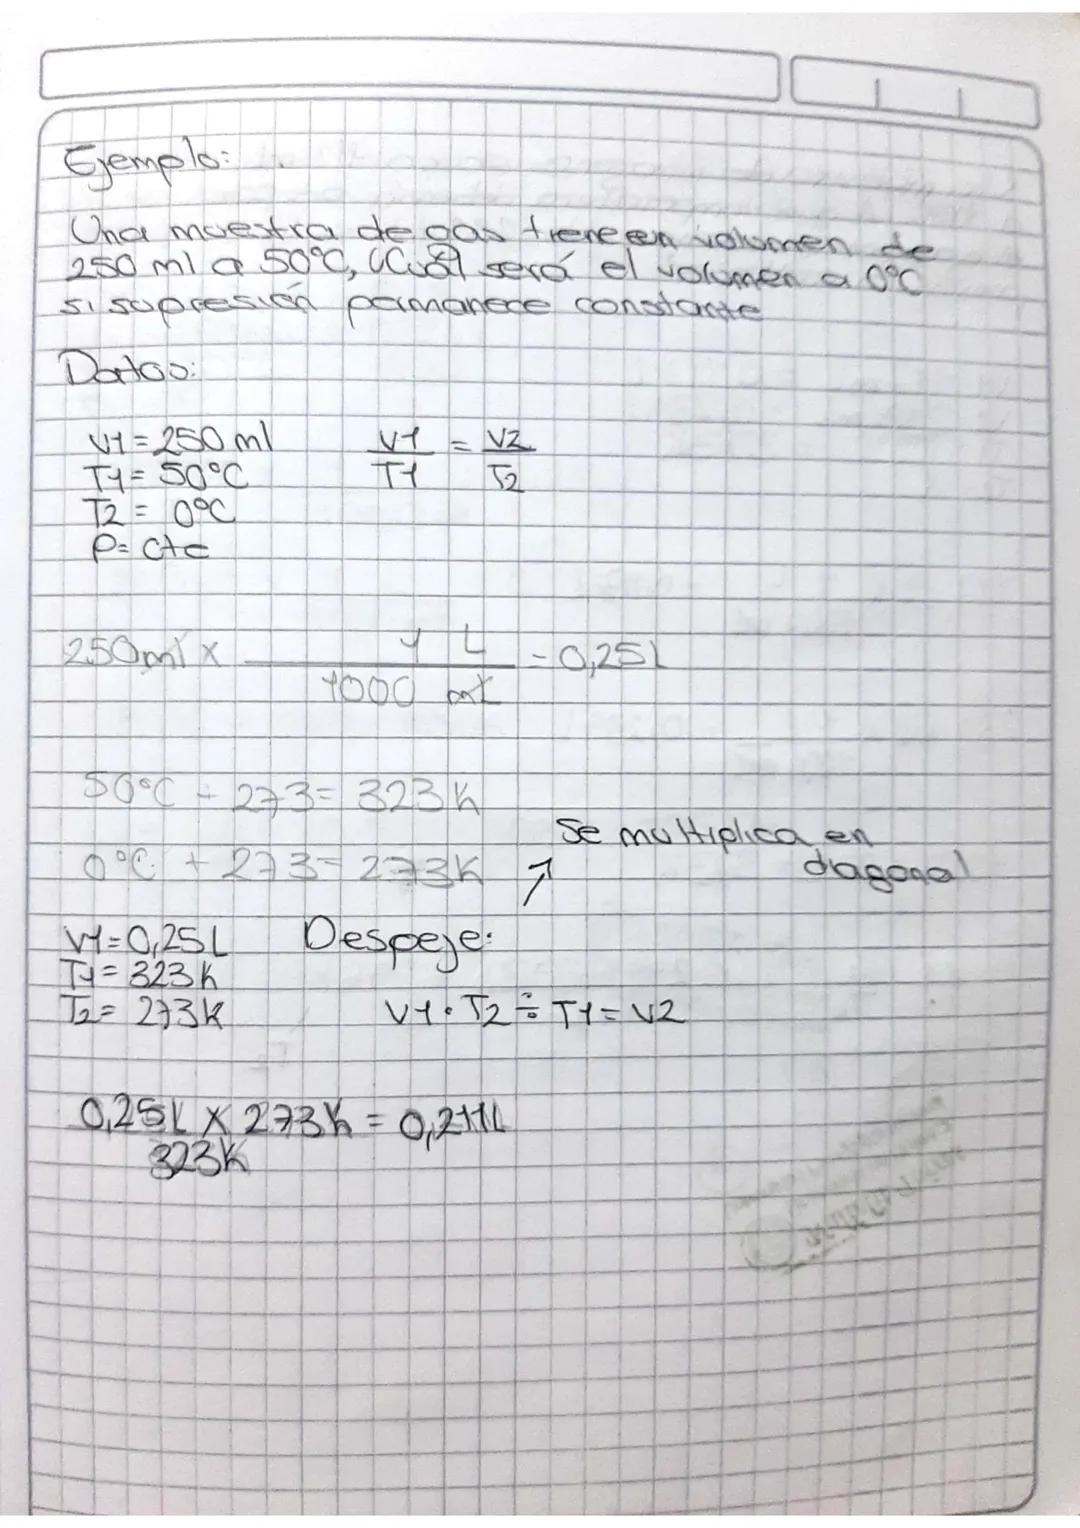 Ejemplo:
Una muestra de gas tiene un volumen de
250 ml a 50°C, ¿Cuál será el volumen a 0°C
si su presión permanece constante
Datos:
V1 = 250 ml
T1 = 50°C
T2 = 0°C
P = Cte
V1 = V2
T1 T2
250 ml x 1 L = 0,25 L
1000 ml
50°C + 273 = 323 K
0°C + 273 = 273 K
Se multiplica en
diagonal
V1 = 0,25 L
T1 = 323 K
T2 = 273 K
Despeje:
V1 • T2 ÷ T1 = V2
0,25 L x 273 K = 0,211 L
323 K